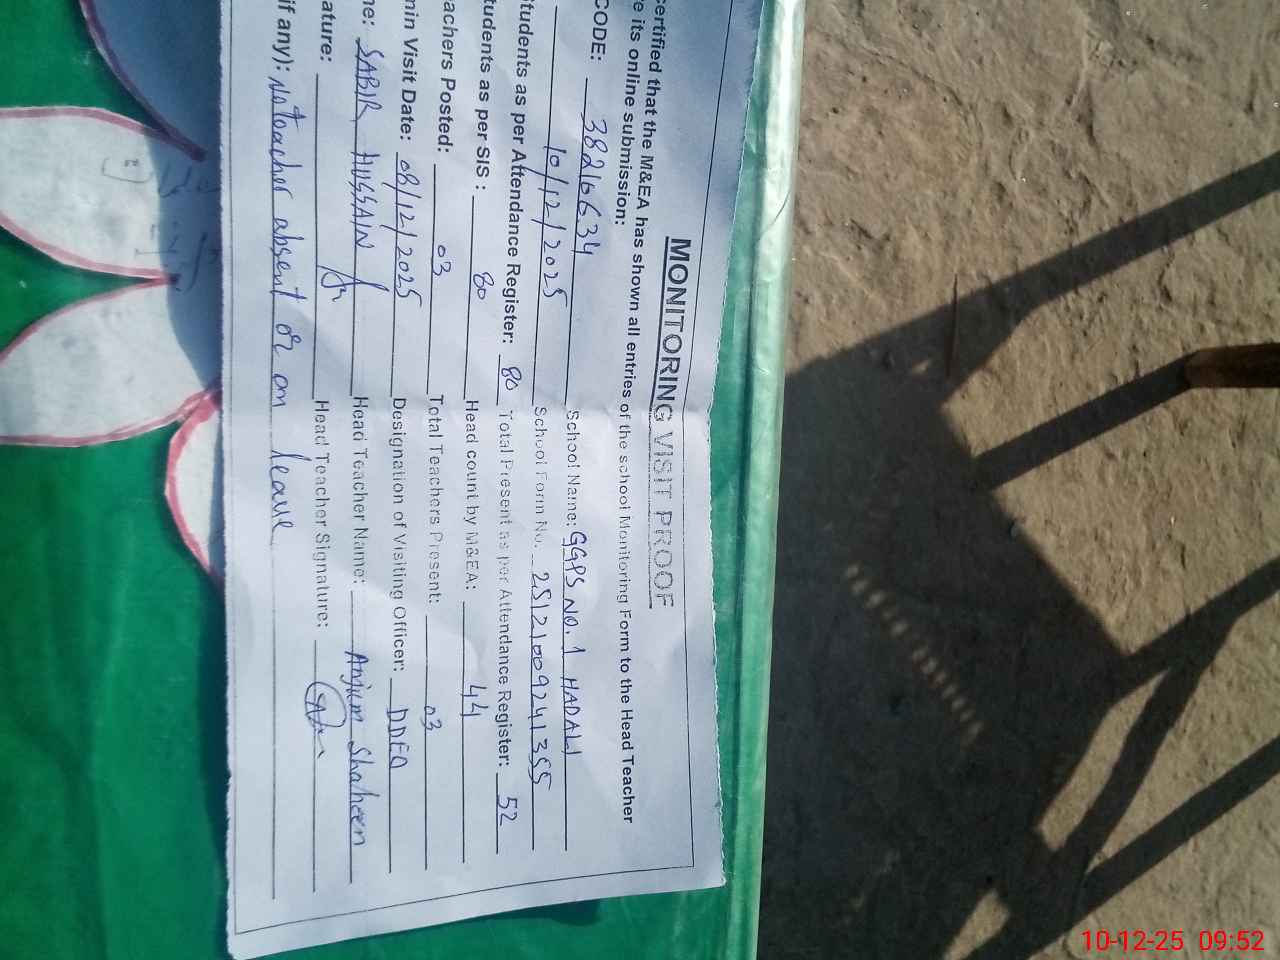 MONITORING VISIT PROOF
certified that the M&EA has shown all entries of the school Monitoring Form to the Head Teacher
e its online submission:
CODE: 38216634 School Name: GGPS NO. 1 HADALI
10/12/2025 School Form No. 25121009241355
Students as per Attendance Register: 80 Total Present as per Attendance Register: 52
tudents as per SIS : 80 Head count by M&EA: 44
eachers Posted: 03 Total Teachers Present: 03
min Visit Date: 08/12/2025 Designation of Visiting Officer: DDEO
me: SABIR HUSSAIN Head Teacher Name: Anjum Shaheen
ature: Head Teacher Signature:
if any): No teacher absent or on leave
10-12-25 09:52